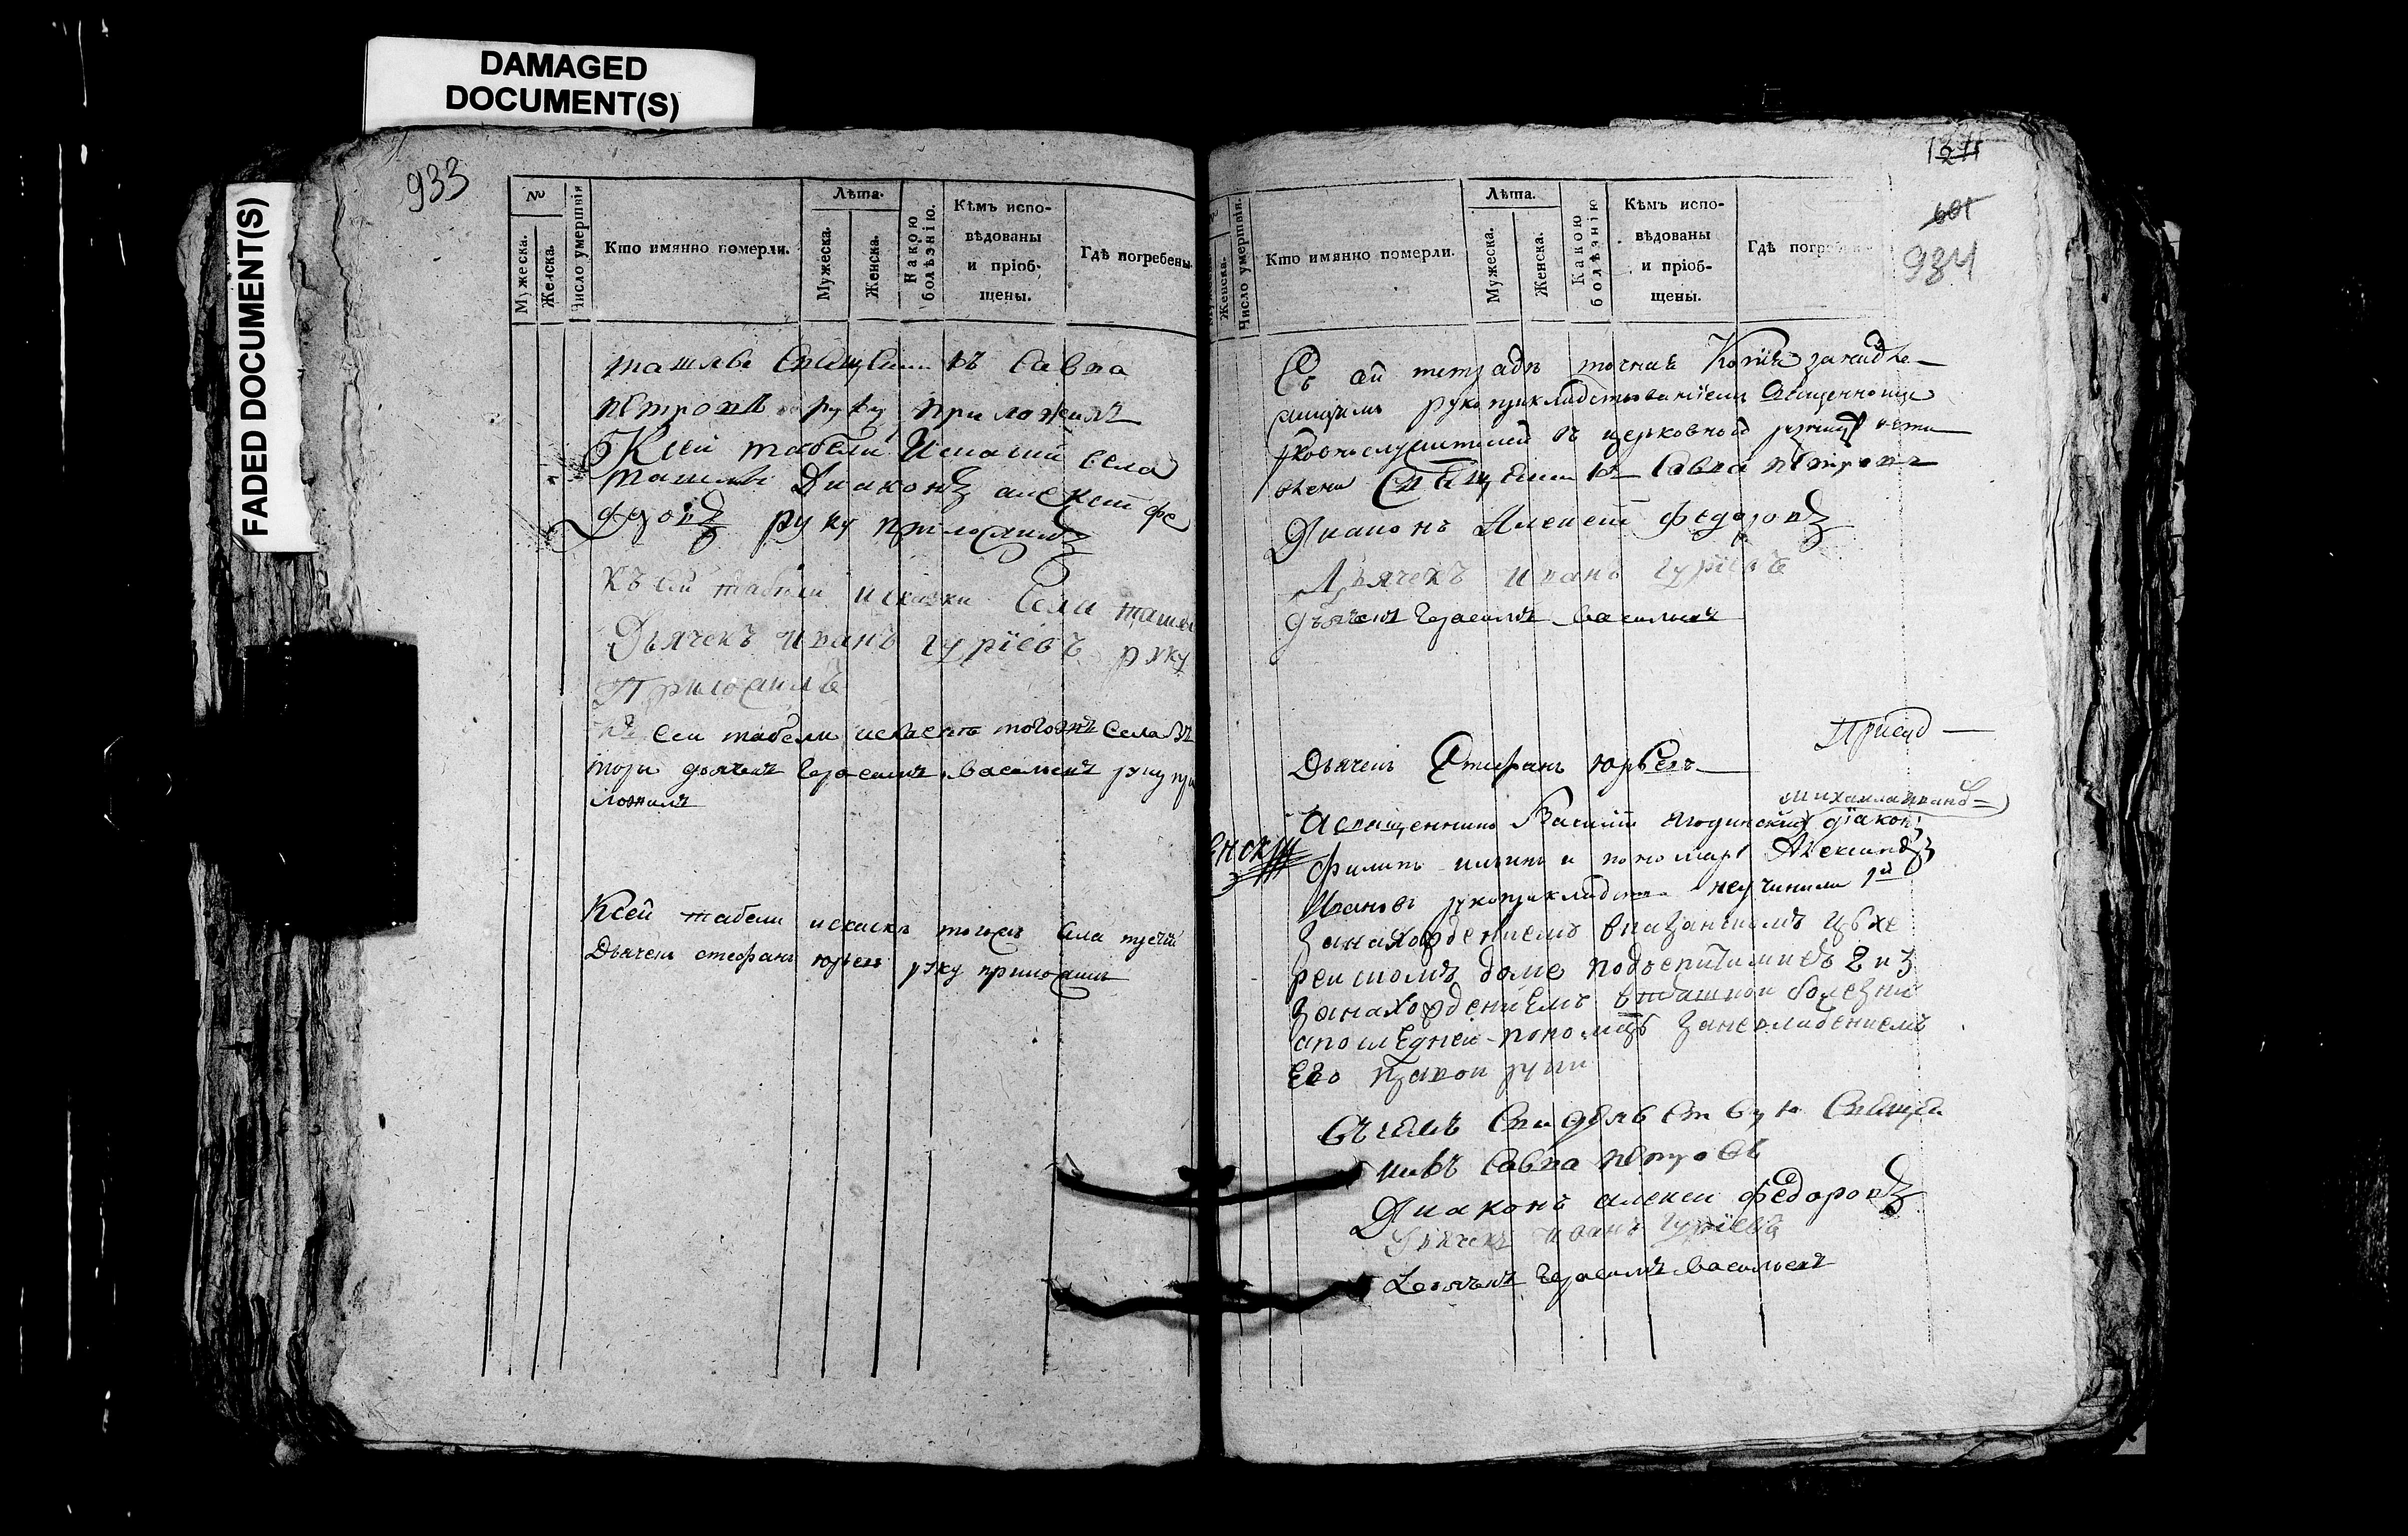 DAMAGED
DOCUMENT(S)
FADED DOCUMENT(S)
933
№
Мужеска.
Женска.
Число умершвія
Кто имянно померли.
Лѣта.
Мужеска.
Женска.
Какою болѣзнію.
Кѣмъ испо-
вѣдованы
и пріоб-
щены.
Гдѣ погребены
ташлы Священникъ Савва
Петровъ руку приложилъ
К сей табели и скаски села
Ташлы Диаконъ алексей фе
доровъ руку приложилъ
Къ сей табели и скаски Села ташлы
Дьячекъ иванъ гуріевъ руку
Приложилъ
Къ сеи табели искаске тогожъ села въ
торы дьячекъ Герасимъ васильевъ руку при
ложилъ
Ксей табели искаскъ тогожъ села третий
Дьячекъ стефанъ юрьевъ руку приложилъ
984
Женска.
Число умершвія.
Кто имянно померли.
Лѣта.
Мужеска.
Женска.
Какою болѣзнію
Кѣмъ испо-
вѣдованы
и пріоб-
щены.
Гдѣ
Съ сей тетради точная Копия занадле
жащимъ рукоприкладствованіемъ Священноце
рковнослужителей въ церковной
Священникъ Савва Петровъ
Диаконъ Алексей Федоровъ
Дьячекъ иванъ гуріевъ
дьячекъ Герасимъ васильевъ
Дьячекъ Стефанъ юрьевъ
Присуд
михаила иванов
А священникъ Василий диаконъ
Филипъ ильинъ и пономарь Александръ
Ивановъ рукоприкладства неучинили 1й
Занахождениемъ вказанскомъ архие
рейскомъ доме подъепитимиею 2 и 3
Занахождениемъ втяшкои болезни
апоследней пономарь Заневладениемъ
Его правои руки
Въчемъ Свидѣтельствую Священ
никъ Савва Петровъ
Диаконъ алексеи федоровъ
Дьячекъ иванъ гуріевъ
Дьячекъ Герасимъ васильевъ